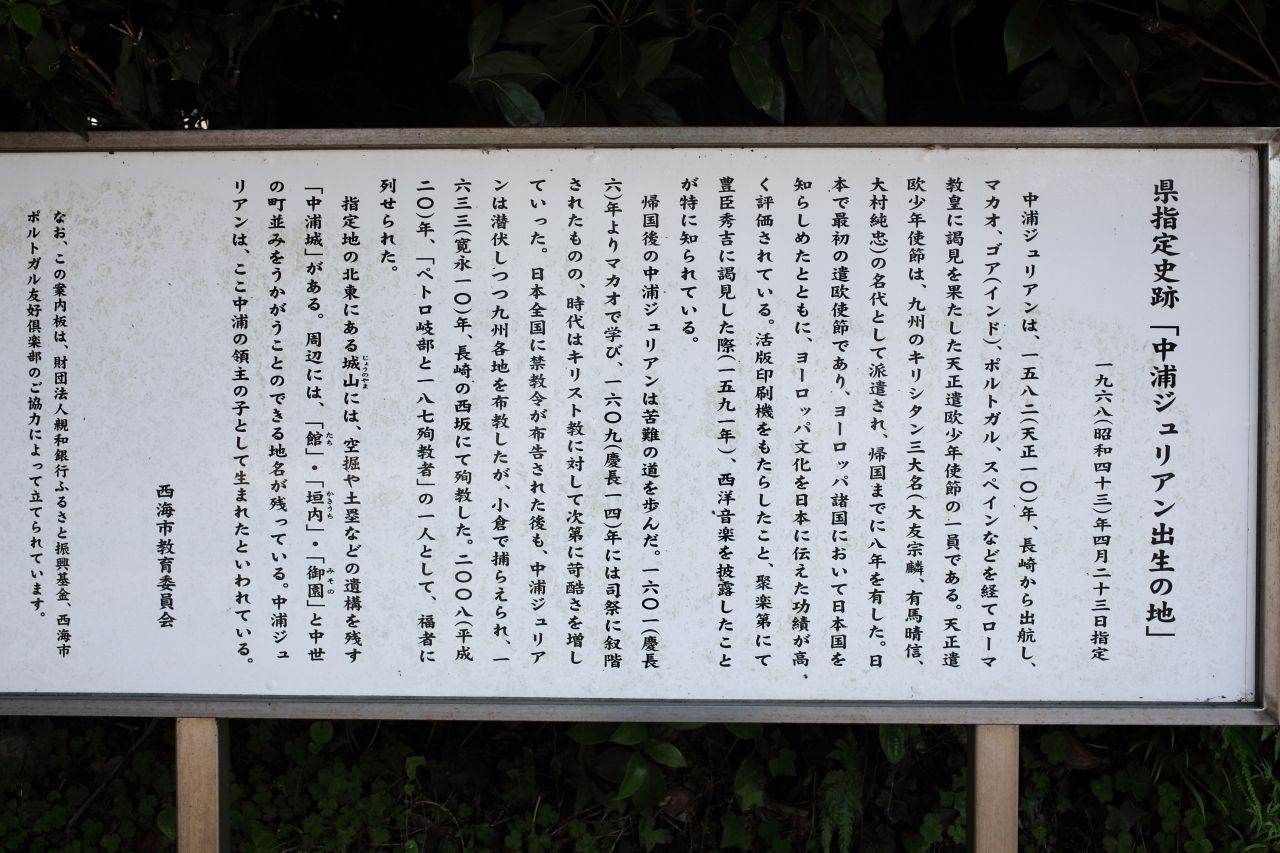 県指定史跡「中浦ジュリアン出生の地」
一九六八(昭和四十三)年四月二十三日指定
中浦ジュリアンは、一五八二(天正一〇)年、長崎から出航し、
マカオ、ゴア(インド)、ポルトガル、スペインなどを経てローマ
教皇に謁見を果たした天正遣欧少年使節の一員である。天正遣
欧少年使節は、九州のキリシタン三大名(大友宗麟、有馬晴信、
大村純忠)の名代として派遣され、帰国までに八年を有した。日
本で最初の遣欧使節であり、ヨーロッパ諸国において日本国を
知らしめたとともに、ヨーロッパ文化を日本に伝えた功績が高
く評価されている。活版印刷機をもたらしたこと、聚楽第にて
豊臣秀吉に謁見した際(一五九一年)、西洋音楽を披露したこと
が特に知られている。
帰国後の中浦ジュリアンは苦難の道を歩んだ。一六〇一(慶長
六)年よりマカオで学び、一六〇九(慶長一四)年には司祭に叙階
されたものの、時代はキリスト教に対して次第に苛酷さを増し
ていった。日本全国に禁教令が布告された後も、中浦ジュリア
ンは潜伏しつつ九州各地を布教したが、小倉で捕らえられ、一
六三三(寛永一〇)年、長崎の西坂にて殉教した。二〇〇八(平成
二〇)年、「ペトロ岐部と一八七殉教者」の一人として、福者に
列せられた。
指定地の北東にある城山には、空掘や土塁などの遺構を残す
じょうのやま
「中浦城」がある。周辺には、「館」・「垣内」・「御園」と中世
たち かきうち みその
の町並みをうかがうことのできる地名が残っている。中浦ジュ
リアンは、ここ中浦の領主の子として生まれたといわれている。
西海市教育委員会
なお、この案内板は、財団法人親和銀行ふるさと振興基金、西海市
ポルトガル友好倶楽部のご協力によって立てられています。